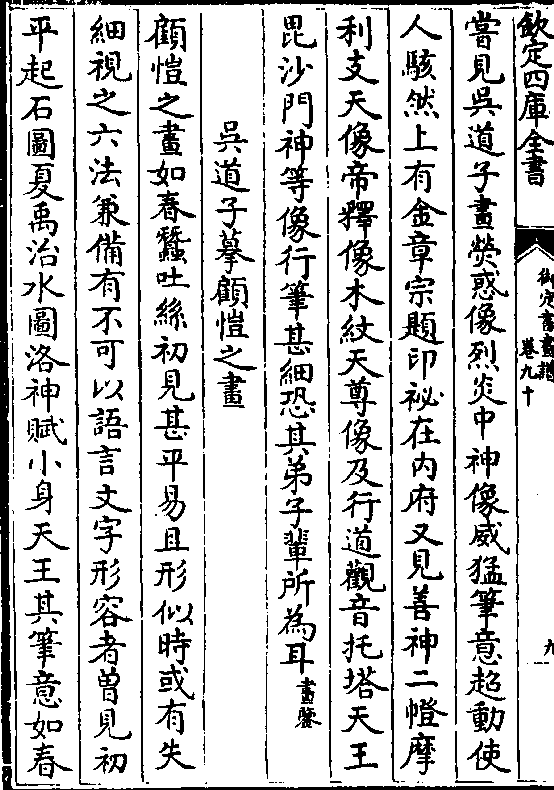 欽定四庫全書
御定書畫譜
卷九十
九
嘗見吳道子畫熒惑像烈炎中神像威猛筆意超動使
人駭然上有金章宗題印祕在內府又見善神二幢摩
利支天像帝釋像木紋天尊像及行道觀音托塔天王
毘沙門神等像行筆甚細恐其弟子輩所為耳畫鑒
吳道子摹顧愷之畫
顧愷之畫如春蠶吐絲初見甚平易且形似時或有失
細視之六法兼備有不可以語言文字形容者曽見初
平起石圖夏禹治水圖洛神賦小身天王其筆意如春